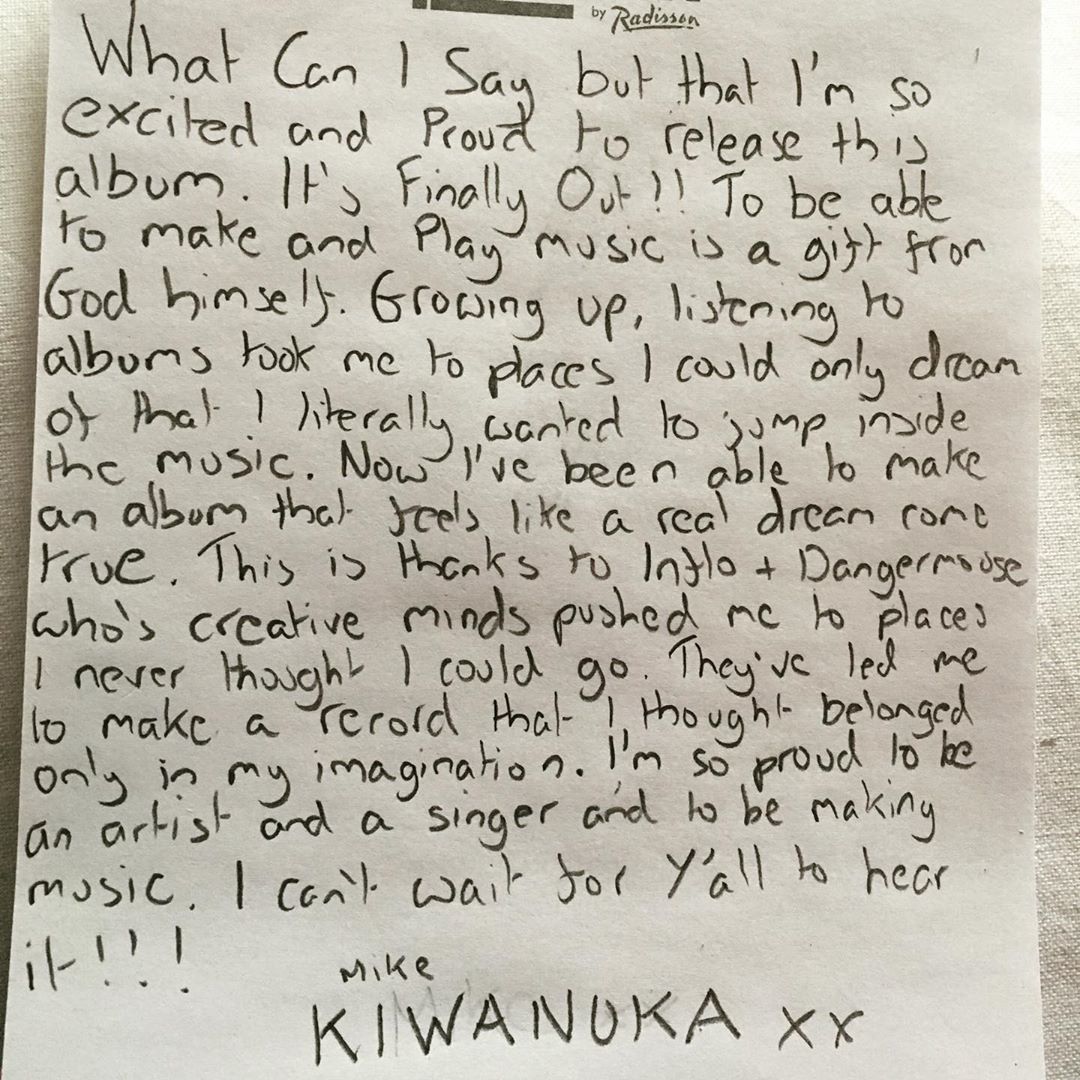 by Radisson
What Can I Say but that I'm so
excited and Proud to release this
album. It's Finally Out!! To be able
to make and Play music is a gift from
God himself. Growing up, listening to
albums took me to places I could only dream
of that I literally wanted to jump inside
the music. Now I've been able to make
an album that feels like a real dream come
true. This is thanks to Inflo + Dangermouse
who's creative minds pushed me to places
I never thought I could go. They've led me
to make a record that I thought belonged
only in my imagination. I'm so proud to be
an artist and a singer and to be making
music. I can't wait for Y'all to hear
it!!!
Mike
KIWANUKA xx